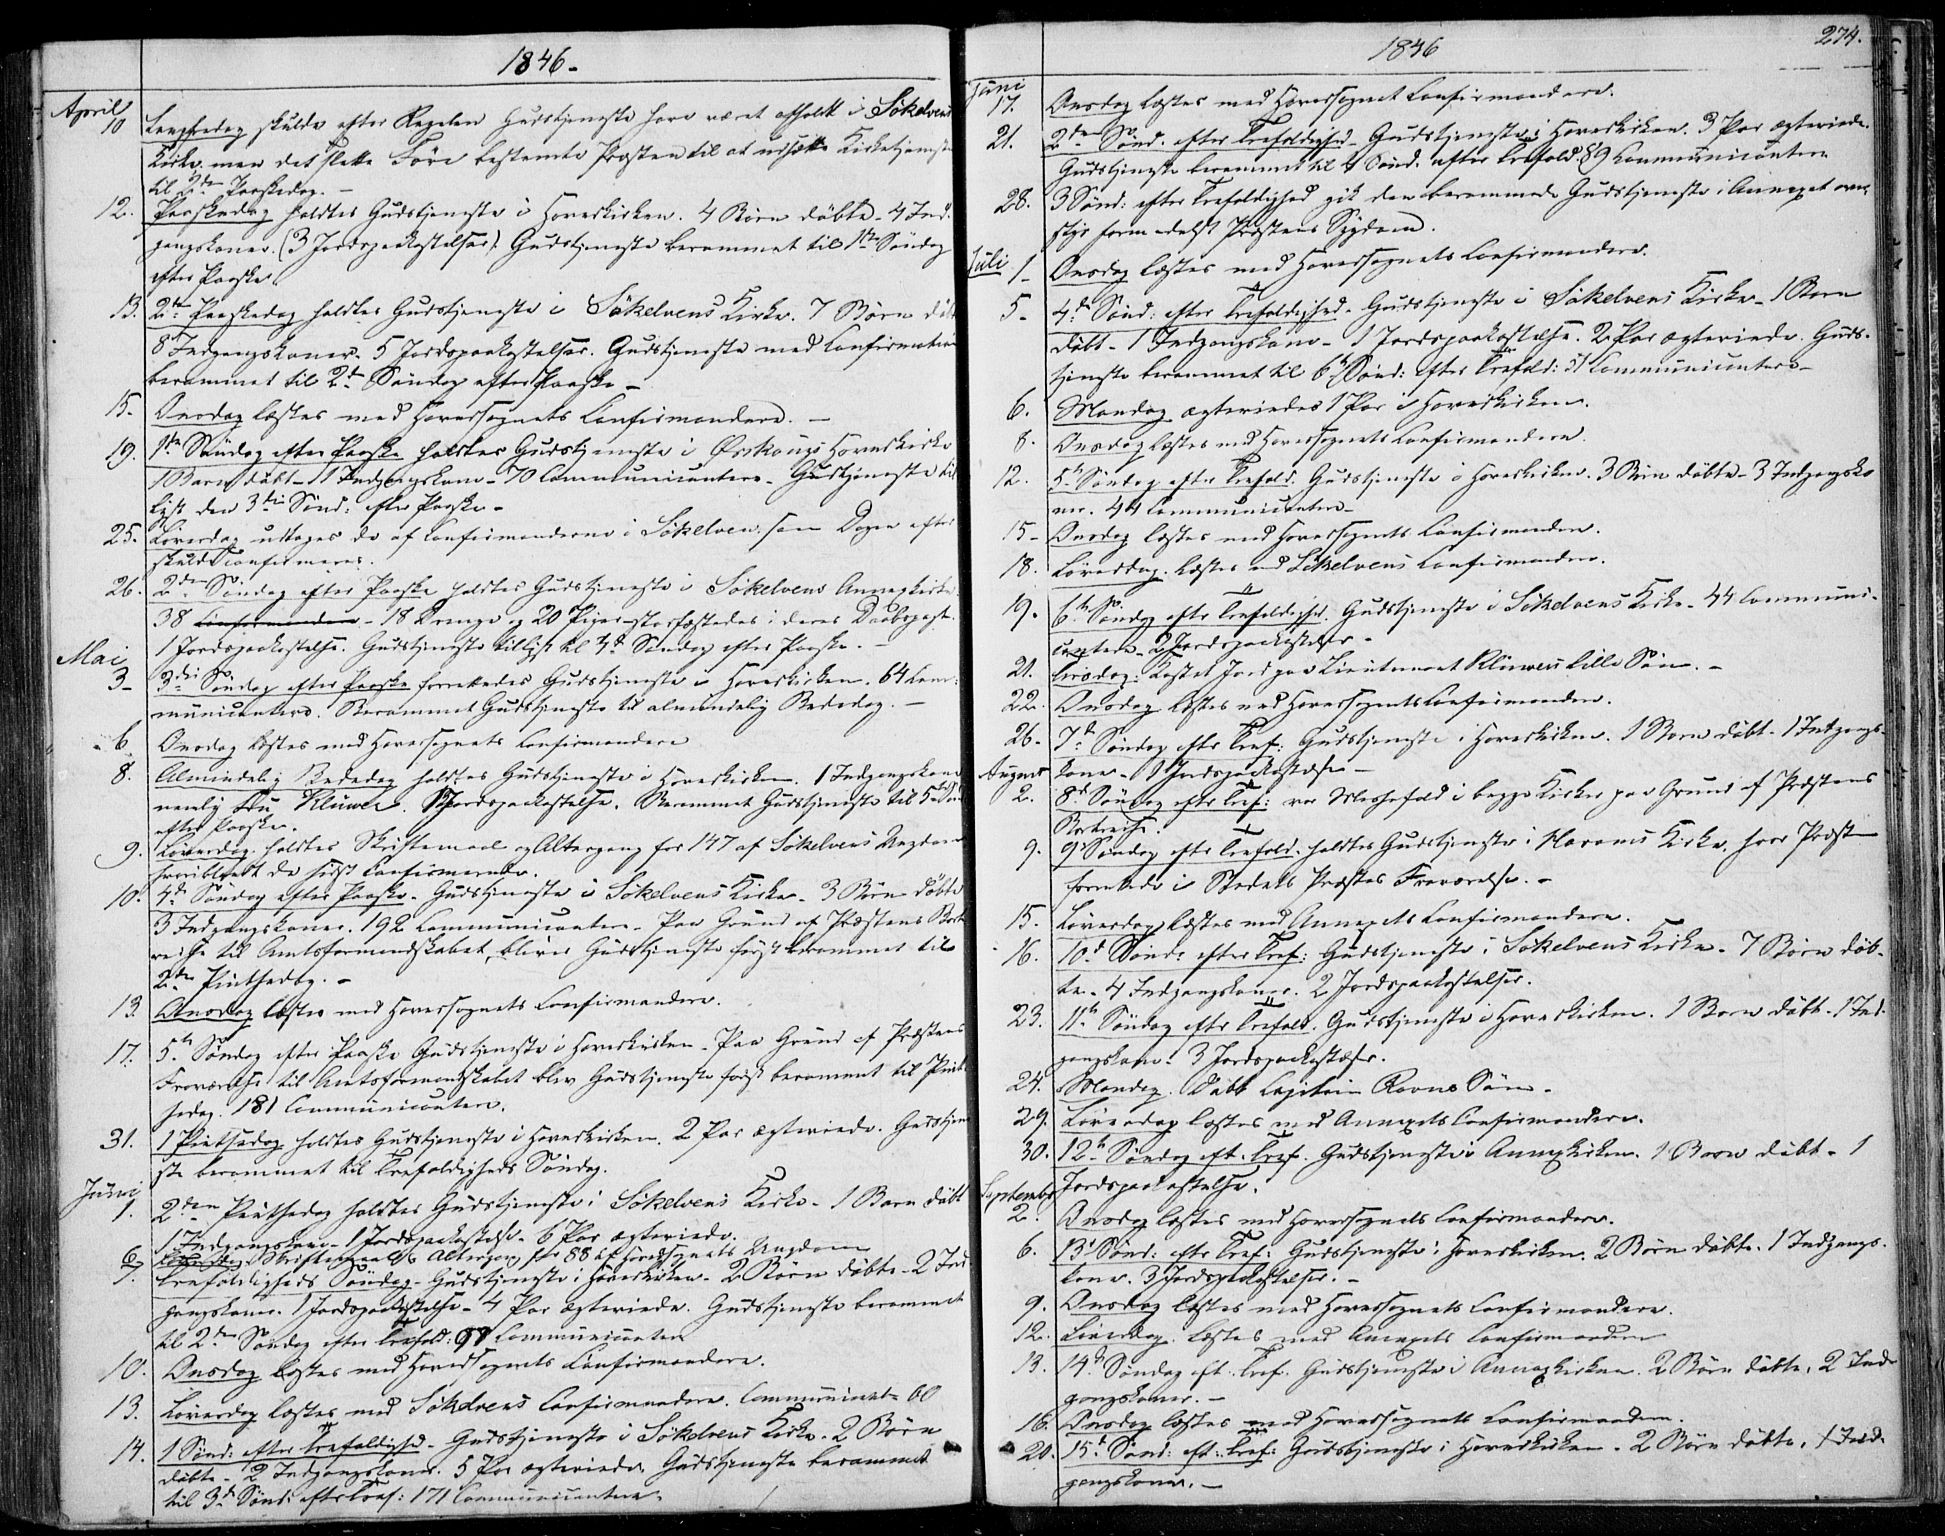 1846.
April
10 Langfredag skulde efter Regelen Gudstjeneste have været afholdt i Søkelvens
Kirke, men det slette Føre bestemte Præsten til at udsætte Kirketjenesten
til 2den Paaskedag. –
12. Paaskedag holdtes Gudstjeneste i Hovedkirken. 4 Børn døbte. 4 Ind-
gangskoner. (3 Jordspaakastelser). Gudstjeneste berammet til 1ste Søndag
efter Paaske.
13. 2den Paaskedag holdtes Gudstjeneste i Søkelvens Kirke. 7 Børn døbt
8 Indgangskoner. 5 Jordspaakastelser. Gudstjeneste med Confirmation
berammet til 2den Søndag efter Paaske –
15. Onsdag læstes med Hovedsognets Confirmandere. –
19. 1ste Søndag efter Paaske holdtes Gudstjeneste i Ørskougs Hovedkirke
1 Barn døbt – 1 Indgangskone – 70 Communicantere. Gudstjeneste til-
lyst den 3die Sønd: efter Paaske –
25. Løverdag udtoges de af Confirmanderne i Søkelven, som Dagen efter
skulde confirmeres.
26. 2den Søndag efter Paaske holdtes Gudstjeneste i Søkelvens Annexkirke
38 Confirmander – 18 Drenge og 20 Piger stadfæstedes i deres Daabspagt.
1 Jordspaakastelse. Gudstjeneste tillyst til 4de Søndag efter Paaske. –
Mai
3 – 3die Søndag efter Paaske forrettedes Gudstjeneste i Hovedkirken. 64 Com-
municantere. Berammet Gudstjeneste til almindelig Bededag. –
6 Onsdag læstes med Hovedsognets Confirmandere
8. Almindelig Bededag holdtes Gudstjeneste i Hovedkirken. 1 Indgangskone
nemlig Fru Klüwer. 1 Jordspaakastelse. Berammet Gudstjeneste til 5te Sønd
efter Paaske.
9. Løverdag holdtes Skriftemaal og Altergang for 147 af Søkelvens Ungdom
hvoriblandt de sidst Confirmerede.
10. 4de Søndag efter Paaske. Gudstjeneste i Søkelvens Kirke. 3 Børn døbte
3 Indgangskoner. 192 Communicantere. Paa Grund af Præstens Bort-
reise til Amtsformandskabet, bliver Gudstjeneste først berammet til
2den Pintsedag. –
13. Onsdag læstes med Hovedsognets Confirmandere.
17. 5te Søndag efter Paaske Gudstjeneste i Hovedkirken. Paa Grund af Præstens
Fraværelse til Amtsformandskabet blev Gudstjeneste først berammet til Pint-
sedag. 181 Communicantere.
31. 1 Pintsedag holdtes Gudstjeneste i Hovedkirken. 2 Par ægteviede. Gudstjene-
ste berammet til Trefoldigheds Søndag.
Juni
1. 2den Pintsedag holdtes Gudstjeneste i Søkelvens Kirke. 1 Barn døbt
1 Indgangskone. 1 Jordspaakastelse. 6 Par ægteviede.
6. Løverdag Skriftemaal og Altergang for 88 af Hovedsognets Ungdom
7. Trefoldigheds Søndag. Gudstjeneste i Hovedkirken. 2 Børn døbte. 2 Ind-
gangskoner. 1 Jordspaakastelse. 4 Par ægteviede. Gudstjeneste berammet
til 2den Søndag efter Trefold: 97 Communicantere
10. Onsdag læstes med Hovedsognets Confirmandere.
13. Løverdag læstes med Søkelvens Confirmandere. Communicat= 60
14. 1 Sønd: efter Trefoldighed. Gudstjeneste i Søkelvens Kirke. 2 Børn
døbte. 2 Indgangskoner. 5 Par ægteviede. Gudstjeneste berammet
til 3die Sønd: efter Tref: 171 Communicantere.
1846
274.
Juni
17. Onsdag læstes med Hovedsognets Confirmandere.
21. 2den Sønd. efter Trefoldighed. Gudstjeneste i Hovedkirken. 3 Par ægteviede.
Gudstjeneste berammet til 4 Sønd. efter Trefold. 89 Communicantere
28. 3 Sønd: efter Trefoldighed gik den berammede Gudstjeneste i Annexet over
styr formedelst Præstens Sygdom.
Juli 1 – Onsdag læstes med Hovedsognets Confirmandere.
5 – 4de Sønd: efter Trefoldighed. Gudstjeneste i Søkelvens Kirke. 1 Barn
døbt. 1 Indgangskone. 1 Jordspaakastelse. 2 Par ægteviede. Guds-
tjeneste berammet til 6te Sønd: efter Trefold: 51 Communicantere –
6. Mandag ægteviedes 1 Par i Hovedkirken.
8. Onsdag læstes med Hovedsognets Confirmandere.
12. 5te Søndag efter Trefold. Gudstjeneste i Hovedkirken. 3 Børn døbte. 3 Indgangsko-
ner. 44 Communicantere.
15 – Onsdag læstes med Hovedsognets Confirmandere.
18. Løverdag. læstes med Søkelvens Confirmandere.
19. 6te Søndag efter Trefoldighed. Gudstjeneste i Søkelvens Kirke. 44 Communi-
cantere. 2 Jordspaakastelser –
21. Tirsdag: Kastet Jord paa Lieutenant Klüwers lille Søn. –
22. Onsdag læstes med Hovedsognets Confirmandere.
26. 7de Søndag efter Tref: Gudstjeneste i Hovedkirken. 1 Barn døbt. 1 Indgangs-
kone. 1 Jordspaakastelse –
August
2. 8de Søndag efter Tref: var Messefald i begge Kirker paa Grund af Præstens
Bortreise.
9. 9de Søndag efter Trefold. holdtes Gudstjeneste i Harams Kirke, hvor Præst
forrettede i Stedets Præstes Fraværelse. –
15. Løverdag læstes med Annexets Confirmandere.
16. 10de Sønd: efter Tref: Gudstjeneste i Søkelvens Kirke. 7 Børn døb-
te. 4 Indgangskoner. 2 Jordspaakastelser.
23. 11te Søndag efter Trefold. Gudstjeneste i Hovedkirken. 1 Barn døbt. 1 Ind-
gangskone. 3 Jordspaakastelser.
24. Mandag. Døbt Capitain Ravns Søn.
29. Løverdag læstes med Annexets Confirmandere.
30. 12te Søndag eft. Tref. Gudstjeneste i Annexkirken. 1 Barn døbt. 1
Jordspaakastelse.
September
2. Onsdag læstes med Hovedsognets Confirmandere.
6. 13de Sønd: efter Tref: Gudstjeneste i Hovedkirken. 2 Børn døbte. 1 Indgangs-
kone. 3 Jordspaakastelser. –
9. Onsdag læstes med Hovedsognets Confirmandere.
12. Løverdag. læstes med Annexets Confirmandere
13. 14de Søndag eft. Tref. Gudstjeneste i Annexkirken. 2 Børn døbte. 2 Ind-
gangskoner. –
16. Onsdag læstes med Hovedsognets Confirmandere.
20. 15de Sønd: eft. Tref: Gudstjeneste i Hovedkirken. 2 Børn døbte. 1 Ind-
gangskone. –